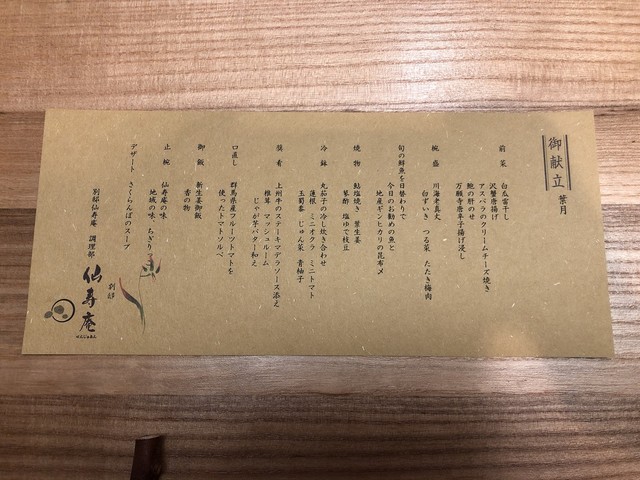 御献立 葉月
前菜 白瓜雷干し
沢蟹唐揚げ
アスパラのクリームチーズ焼き
鮑の肝のせ
万願寺唐辛子揚げ浸し
椀盛 川海老真丈
白ずいき つる菜 たたき梅肉
旬の鮮魚を日替わりで
今日のお勧めの魚と
地産ギンヒカリの昆布〆
焼物 鮎塩焼き 葉生姜
蓼酢 塩ゆで枝豆
冷鉢 丸茄子の冷し炊き合わせ
蓮根 ミニオクラ ミニトマト
玉蜀黍 じゅん菜 青柚子
強肴 上州牛のステーキマデラソース添え
椎茸 マッシュルーム
じゃが芋バター和え
口直し 群馬県産フルーツトマトを
使ったトマトソルベ
御飯 新生姜御飯
香の物
止椀 仙寿庵の味
地域の味 ちぎり
デザート さくらんぼのスープ
別邸仙寿庵 調理部
別邸
仙寿庵
せんじゅあん